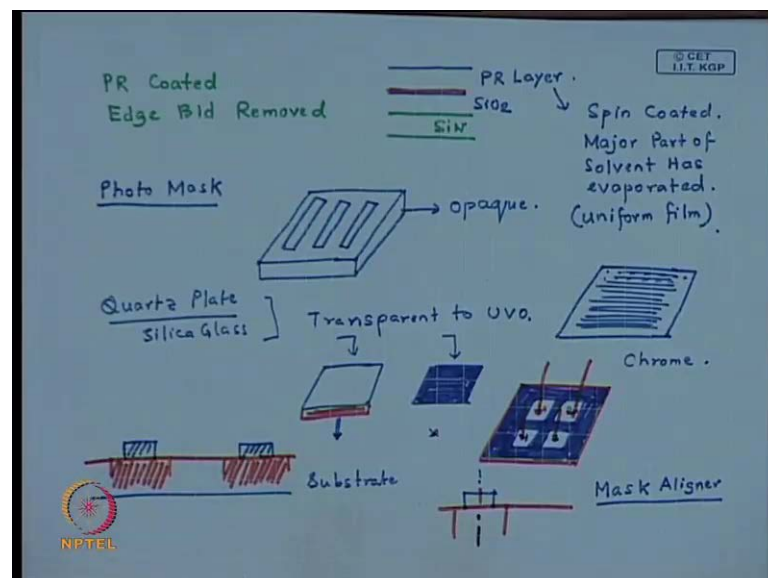 © CET
I.I.T. KGP
PR Coated
Edge Bld Removed
PR Layer.
SiO2
SiN
Spin Coated.
Major Part of
Solvent Has
evaporated.
(Uniform film).
Photo Mask
opaque.
Quartz Plate
Silica Glass
Transparent to UVO.
Chrome.
Substrate
Mask Aligner
NPTEL